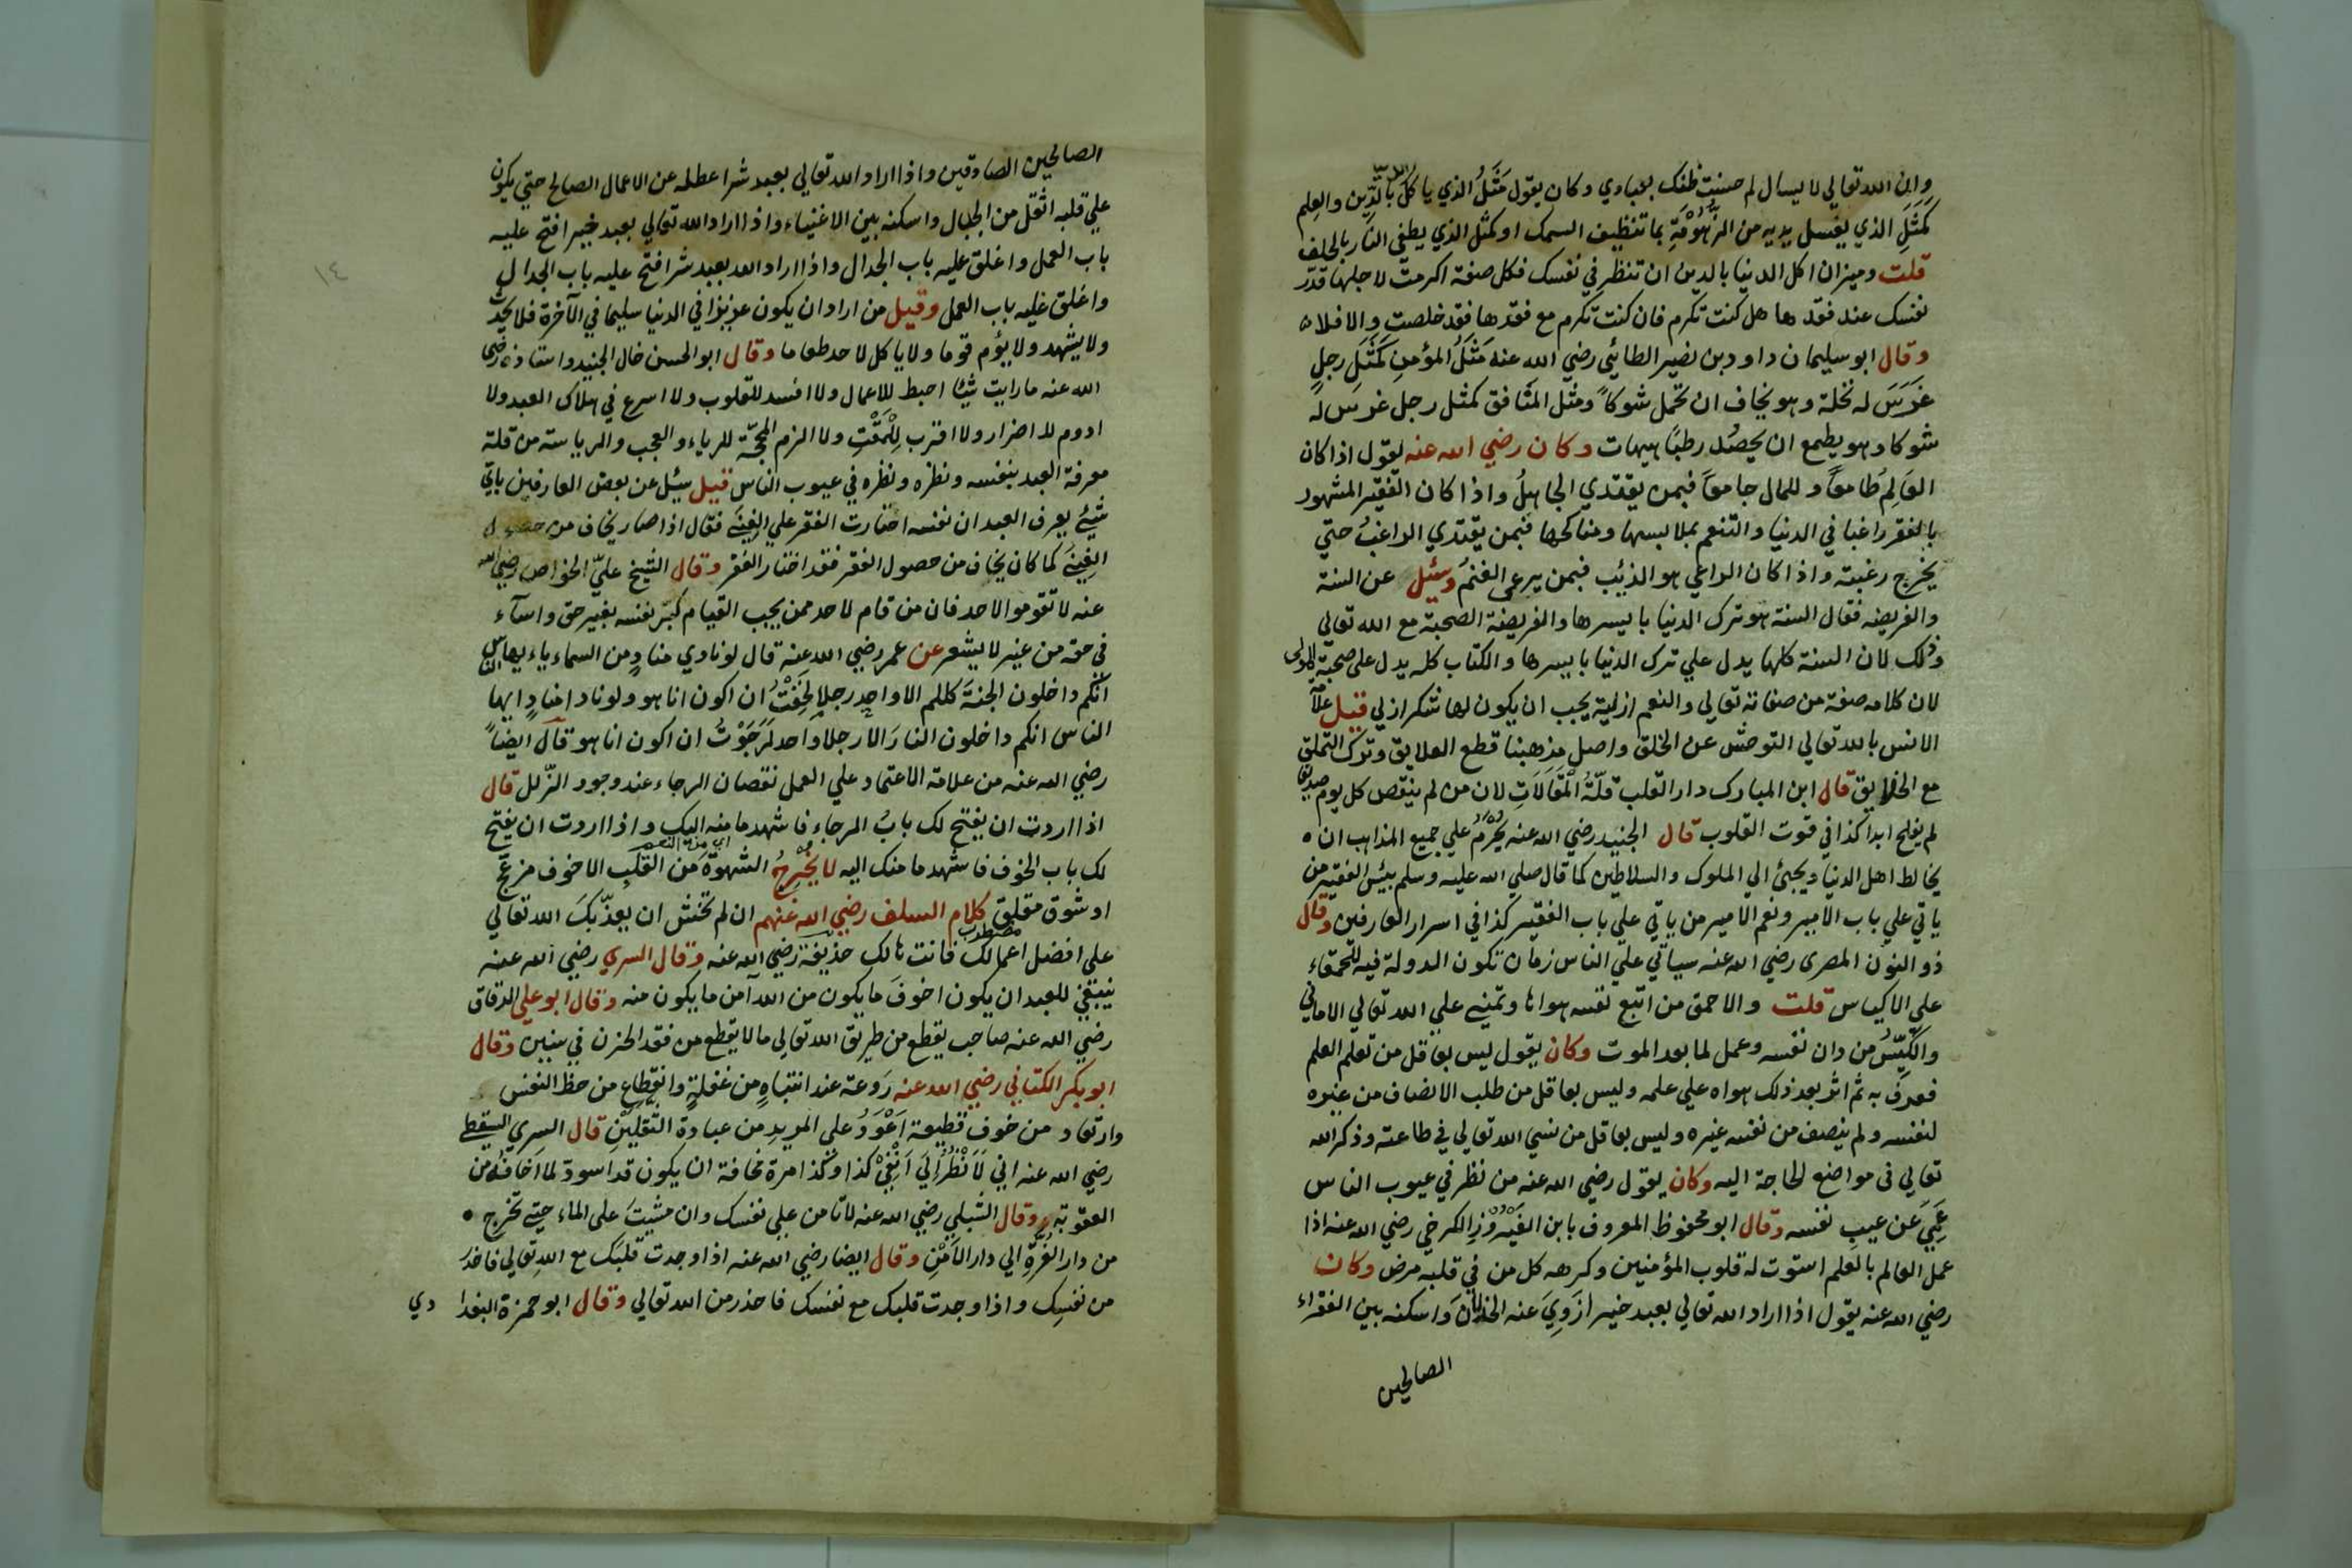 وان الله تعالى لا يسال لم حسنت ظنك بعبادي وكان يقول مَثَلُ الذي ياكل بالدّين والعلم
كمَثَلِ الذي يغسل يديه من الزُّهُوْمَةِ بما تنظيف السمك او كمثل الذي يطفي النار بالحلف
قلت وميزان اكل الدنيا بالدين ان تنظر في نفسك فكل صفة اكرمت لاجلها قدّر
نفسك عند فقدها هل كنت تكرم فان كنت تكرم مع فقدها فقد خلصت والا فلا
وقال ابو سليمان داود بن نصير الطائي رضي الله عنه مَثَلُ المؤمنِ كَمَثَلِ رجلٍ
غَرَسَ له نخلة وهو يخاف ان تحمل شوكاً ومثل المنافق كمثل رجل غرس له
شوكا وهو يطمع ان يحصُد رطبًا هيهات وكان رضي الله عنه يقول اذا كان
العَالِمُ طامعاً وللمال جامعاً فبمن يقتدي الجاهلُ واذا كان الفقير المشهور
بالفقر راغبا في الدنيا والتنعم بملابسها ومناكحها فبمن يقتدي الراغبُ حتي
يخرج رغبته واذا كان الراعي هو الذئب فبمن يرعى الغنمُ وسُئِل عن السنة
والفريضه فقال السنة هو ترك الدنيا باسرها والفريضة الصحبة مع الله تعالي
وذلك لان السنة كلها يدل علي ترك الدنيا باسرها والكتاب كله يدل على صحبة المولى
لان كلامه صفة من صفاته تعالي والنعم ازلية يجب ان يكون لها شكر ازلي قيل علامة
الانس بالله تعالي التوحش عن الخلق واصل مذهبنا قطع العلايق وترك التملق
مع الخلايق قال ابن المبارك دار القلب قلّةُ المْقَالَاتِ لان من لم ينقص كل يوم صديقا
لم يفلح ابدا كذا في قوت القلوب قال الجنيد رضي الله عنه يحَرمُ علي جميع المذاهب ان
يخالط اهل الدنيا ويجئ الي الملوك والسلاطين كما قال صلي الله عليه وسلم بئس الفقير من
ياتي علي باب الامير ونعم الامير من ياتي علي باب الفقير كذا في اسرار العارفين وقال
ذو النون المصرى رضي الله عنه سياتي علي الناس زمان تكون الدولة فيه للحمقاء
علي الاكياس قلت والاحمق من اتبع نفسه هواها وتمني علي الله تعالي الاماني
والكَيّسُ من دان نفسه وعمل لما بعد الموت وكان يقول ليس بعاقل من تعلم العلم
فعرف به ثم اثر بعد ذلك هواه علي علمه وليس بعاقل من طلب الانصاف من غيره
لنفسه ولم ينصف من نفسه غيره وليس بعاقل من نسي الله تعالي في طاعته وذكر الله
تعالي في مواضع الحاجة اليه وكان يقول رضي الله عنه من نظر في عيوب الناس
عَمِيَ عن عيبِ نفسه وقال ابو محفوظ المعروف بابن الفَيْرُوْزِ الكرخي رضي الله عنه اذا
عمل العالم بالعلم استوت له قلوب المؤمنين وكرهه كل من في قلبه مرض وكان
رضي الله عنه يقول اذا اراد الله تعالي بعبد خيرا زَوِيَ عنه الخذلانَ واسكنه بين الفقراء
الصالحين
١٤
الصالحين الصادقين واذا اراد الله تعالي بعبد شرا عطله عن الاعمال الصالح حتي يكون
علي قلبه اثقل من الجبال واسكنه بين الاغنياء واذا اراد الله تعالي بعبد خيرا فتح عليه
باب العمل واغلق عليه باب الجدال واذا اراد الله بعبد شرا فتح عليه باب الجدال
واغلق عليه باب العمل وقيل من اراد ان يكون عزيزا في الدنيا سليما في الآخرة فلا يحدث
ولا يشهد ولا يؤم قوما ولا ياكل لاحد طعاما وقال ابو الحسن خال الجنيد واستاذه رضي
الله عنه ما رايت شيئا احبط للاعمال ولا افسد للقلوب ولا اسرع في هلاك العبد ولا
ادوم للاضرار ولا اقرب لِلْمَقْتِ ولا الزم المحبّة للرياء والعجب والرياسة من قلة
معرفة العبد بنفسه ونظره ونظره في عيوب الناس قيل سئل عن بعض العارفين باي
شئ يعرف العبد ان نفسه اختارت الفقر علي الغِنَي فقال اذا صار يخاف من حصول
الغِنَي كما كان يخاف من حصول الفقر فقد اختار الفقر وقال الشيخ عليّ الخواص رضي الله
عنه لا تقوموا لاحد فان من قام لاحد ممن يحب القيام كبّر نفسه بغير حق واسآء
في حقه من غير لا يشعر عن عمر رضي الله عنه قال لو نادي منادٍ من السماء ياءيها الناس
انكم داخلون الجنةَ كلكم الا واحد رجلا لَخِفْتُ ان اكون انا هو ولو نادا منادٍ ايها
الناس انكم داخلون النارَ الا رجلا واحد لَرَجَوْتُ ان اكون انا هو قال ايضاً
رضي الله عنه من علامة الاعتماد علي العمل نقصان الرجاء عند وجود الزّلل قال
اذا اردت ان يفتح لك بابُ الرجاءِ فاشهد ما منه اليك واذا اردت ان يفتح
لك باب الخوف فاشهد ما منك اليه لا يخْرِجُ الشهوةَ من القلبِ الا خوف مزعج
او شوق مقلق كلام السلف رضي الله عنهم ان لم تخش ان يعذّبكَ الله تعالي
مضطرب
على افضل اعمالك فانت هالك حذيفة رضي الله عنه وقال السري رضي الله عنه
ينبغي للعبد ان يكون اخوفَ ما يكون من الله آمن ما يكون منه وقال ابو علي الدقاق
رضي الله عنه صاحب يقطع من طريق الله تعالي ما لا يقطع من فقد الحزن في سنين وقال
ابو بكر الكتاني رضي الله عنه رَوعة عند انتباهٍ من غفلةٍ وانقطاعٍ من حظ النفس
وارتعاد من خوف قطيعة اَعْوَدُ علي المريدِ من عبادة الثَّقَلَيْنِ قال السري السقطي
رضي الله عنه اني لَاَنْظُرُ اِلَي اَنْفِيْ كذا وكذا مرة مخافة ان يكون قد اسودّ لما اَخافُه من
العقوبة وقال الشبلي رضي الله عنه لا تامن علي نفسك وان مشيتَ على الماءِ حتي تخرج
من دار الغُرَّةِ الي دار الاَمْنِ وقال ايضا رضي الله عنه اذا وجدت قلبَك مع اللهِ تعالي فاحذر
من نفسِك واذا وجدت قلبك مع نفسك فاحذر من الله تعالي وقال ابو حمزة البغدا دي